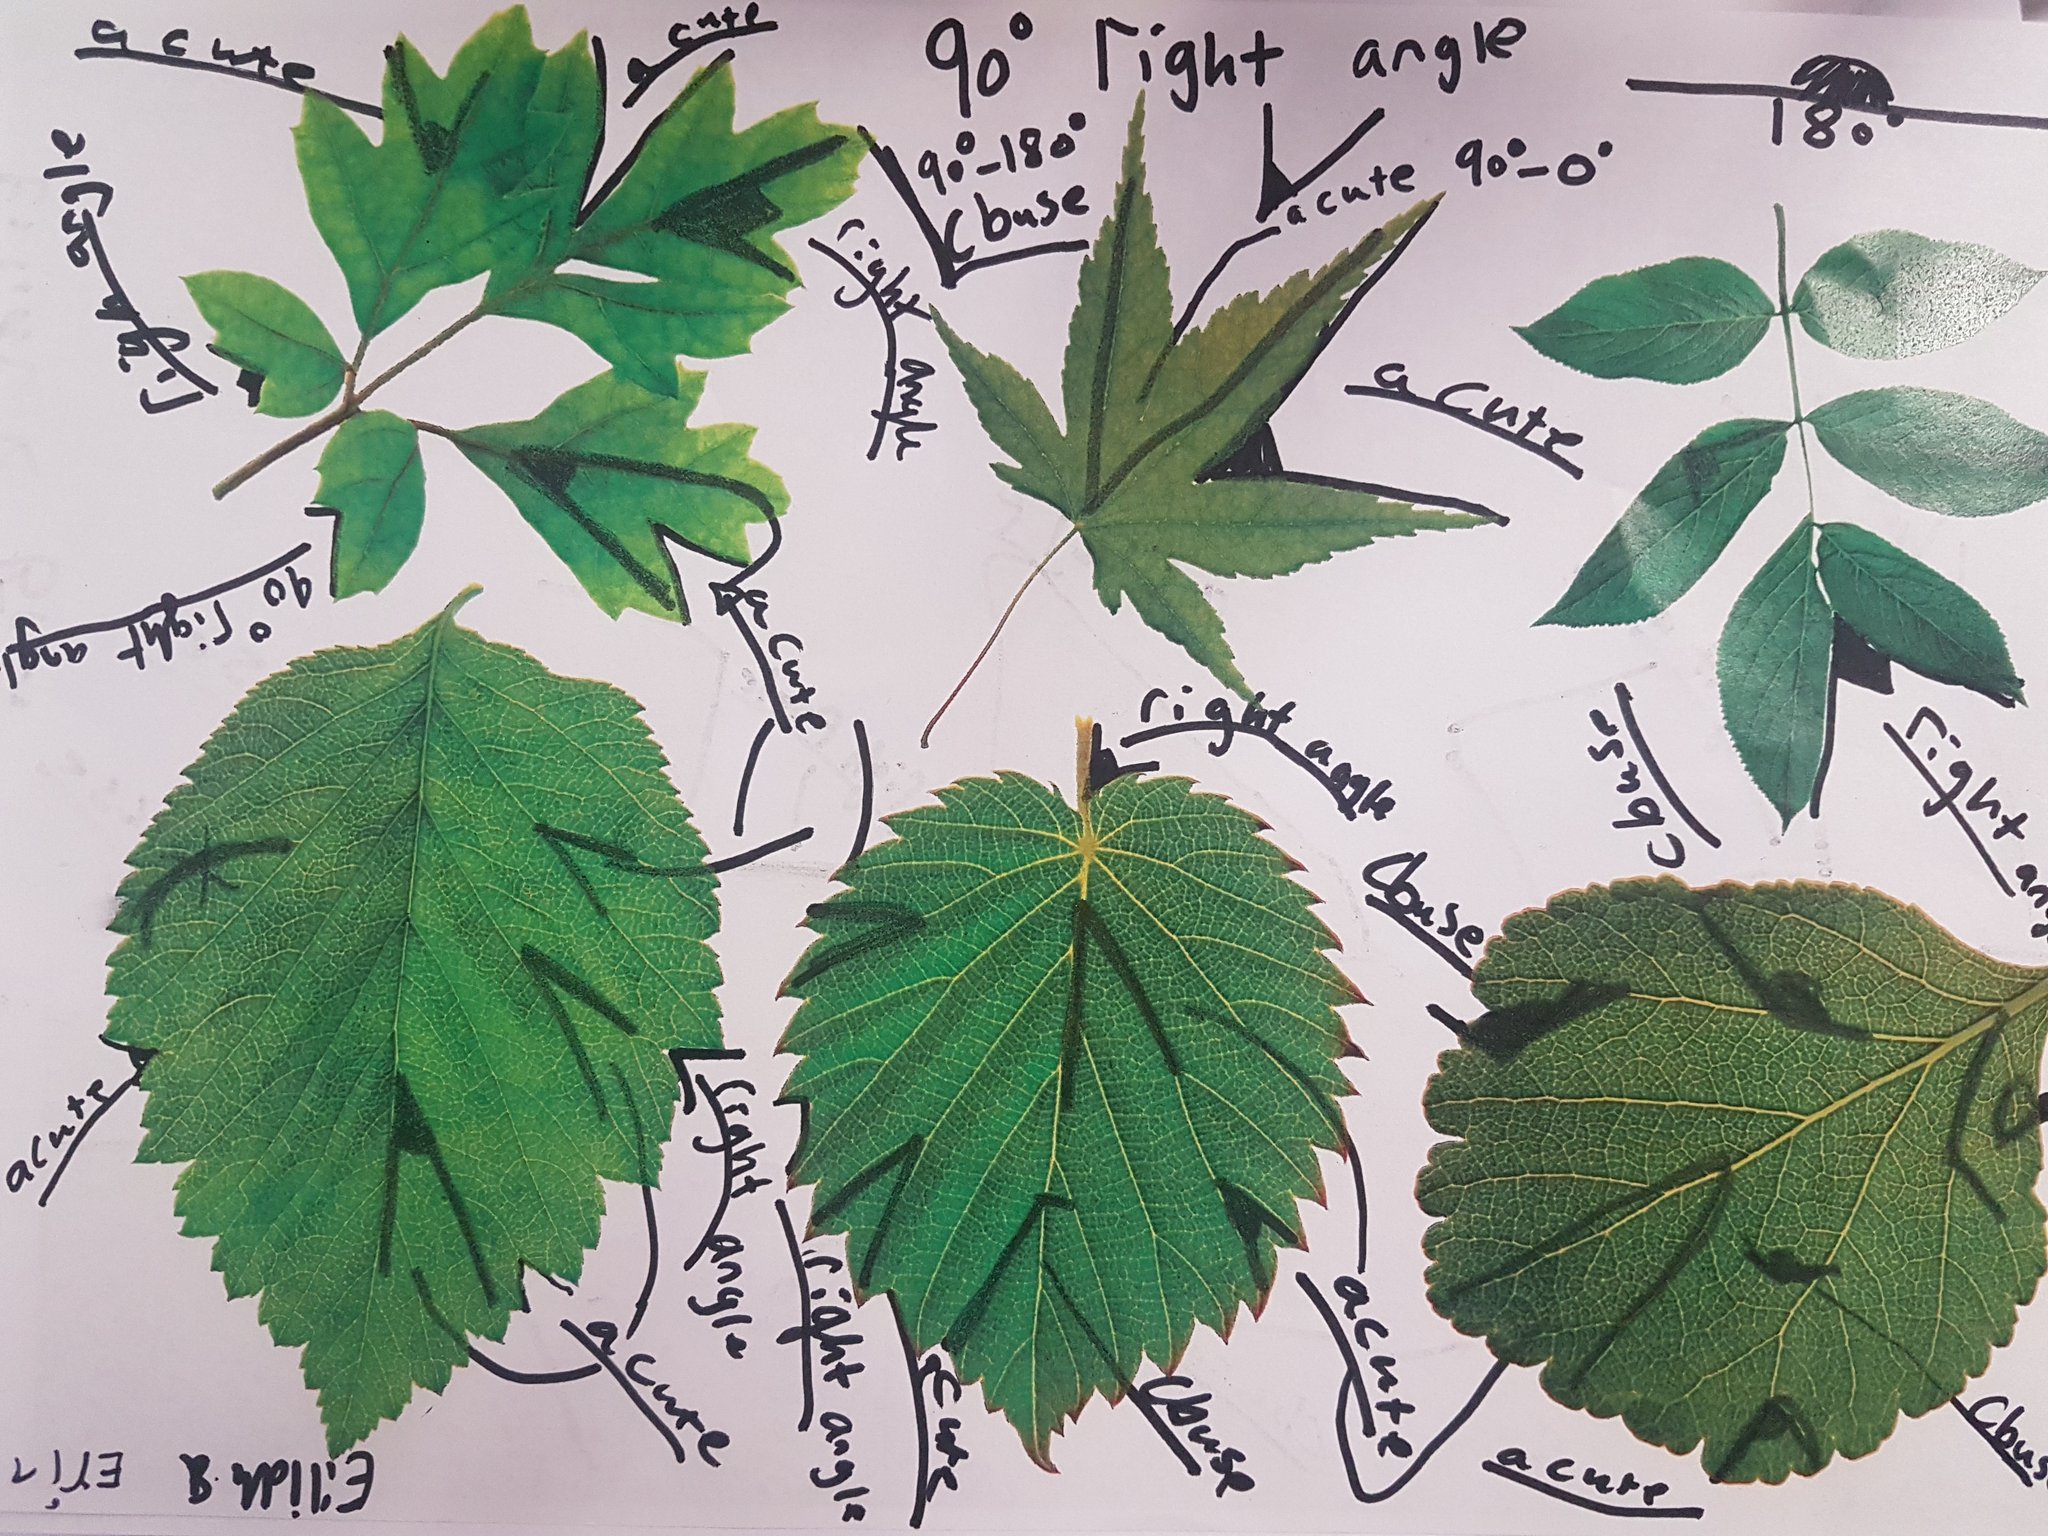 acute
acute
90° right angle
180°
90°-180°
Cbuse
acute 90°-0°
right angle
right angle
acute
90° right angl
acute
right angle
Cbuse
right ang
Cbuse
acute
right angle
acute
right angle
acute
Cbuse
acute
acute
Cbus
Eilidh &
Erin